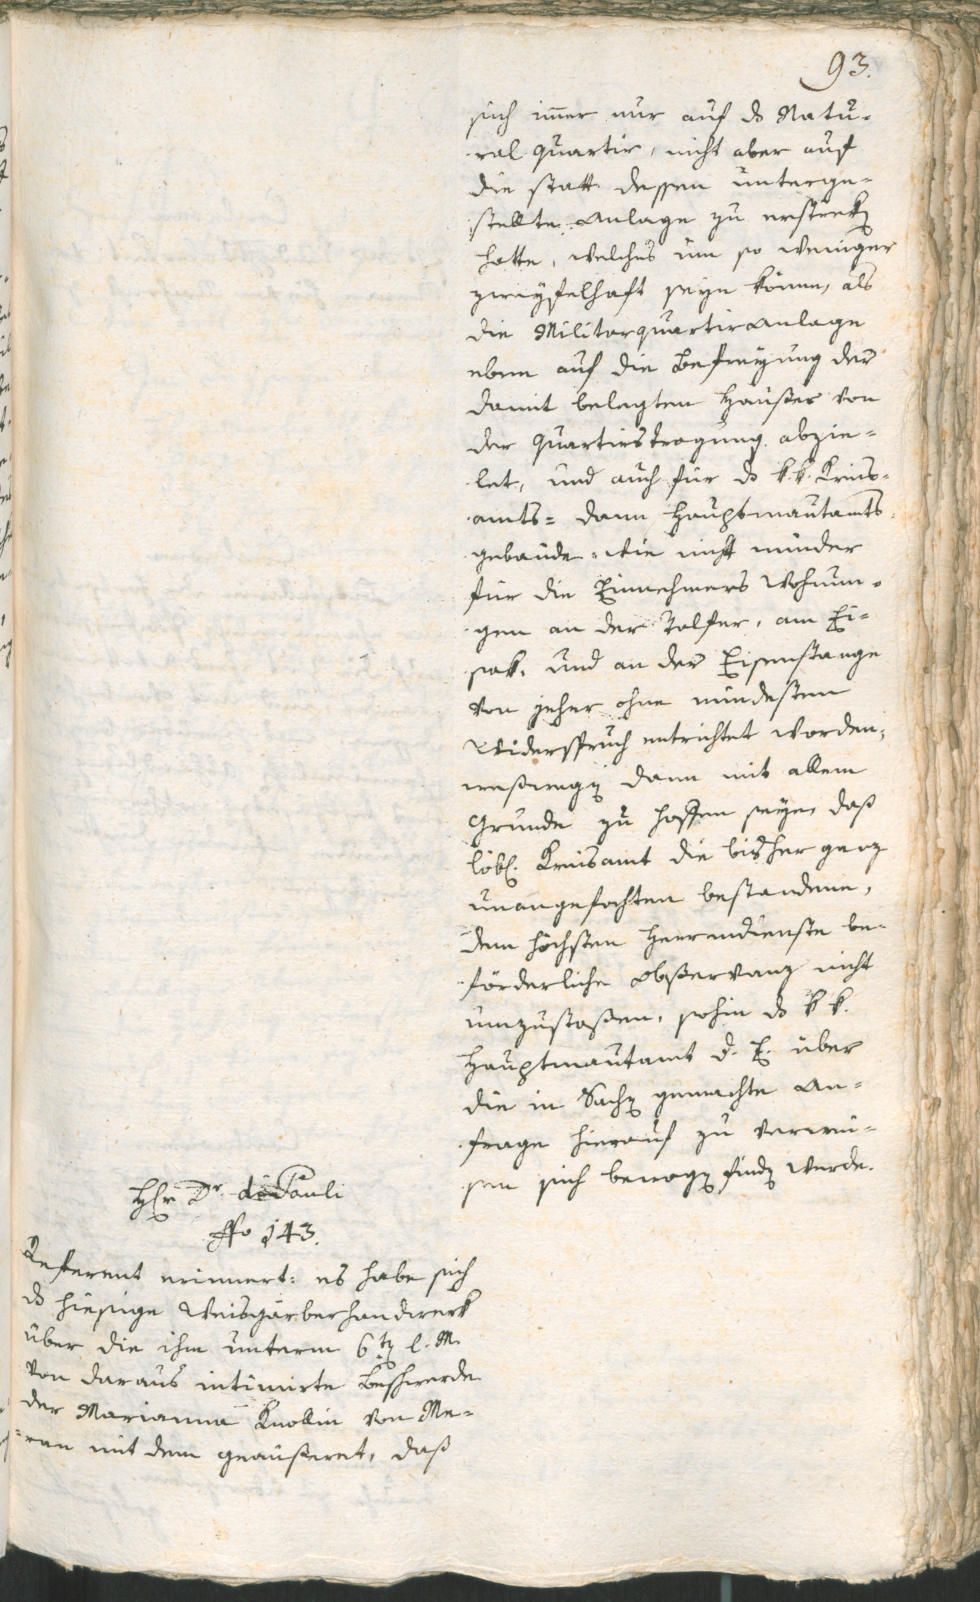 93.
sich im̅er nur auf ds Natu-
ral quartir, nicht aber auf
die statt dessen unterge-
stellte Anlage zu erstrekn
hatte, welches um so weniger
zweyfelhaft seyn könne, als
die Militarquartiranlage
eben auf die Befreyung der
damit belegten Häußer von
der Quartirstragung abzie-
let, und auch für ds k. k. Kreis-
amts- dann Hauptmautamts-
gebäude, wie nicht minder
für die Einnehmers Wohnun-
gen an der Talfer, am Ei-
sak, und an der Eisenstange
von jeher ohne mindesten
Widerspruch entrichtet worden,
weßwegn dann mit allem
Grunde zu hoffen seye, daß
löbl. Kreisamt die bisher ganz
unangefochten bestandene,
dem höchsten Herrendienste be-
förderliche Obßervanz nicht
umzustoßen, sohin ds k k.
Hauptmautamt d. E. über
die in Sachn gemachte An-
frage hierauf zu verwei-
sen sich bewogn findn werde.
Hr Dr. di Pauli
ffo 143.
Referent erinnert: es habe sich
ds hiesige Weisgärberhandwerk
über die ihm unterm 6tn l. M.
von daraus intimirte Beschwerde
der Marianna Knollin von Me-
ran mit dem geäußeret, daß